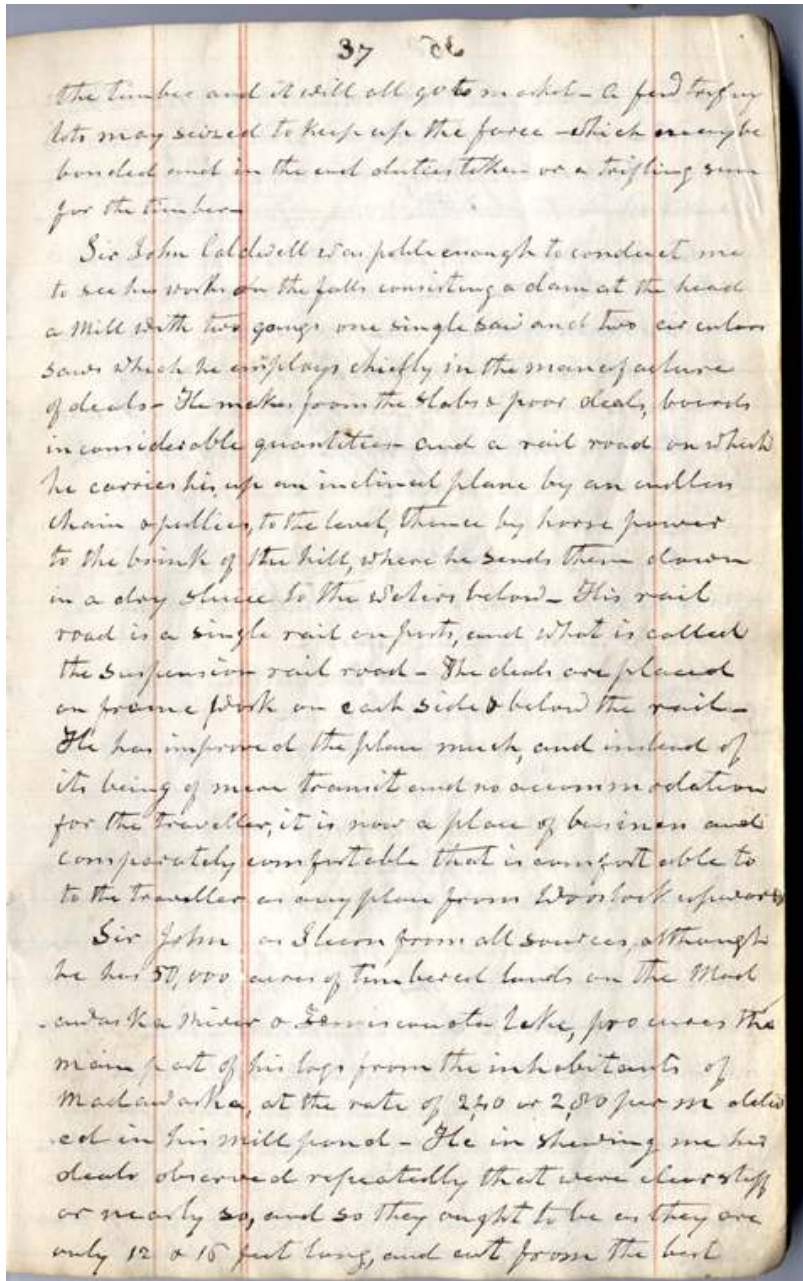 37
the timber and it will all go to market - A few trifling
lots may seized to keep up the farce - which may be
bonded and in the end duties taken or a trifling sum
for the timber -
Sir John Caldwell was polite enough to conduct me
to see his works on the falls consisting a dam at the head
a Mill with two gangs one single saw and two circular
saws which he employs chiefly in the manufacture
of deals - He makes from the slabs & poor deals, boards
in considerable quantities - and a rail road on which
he carries his up an inclined plane by an endless
chain & pullies, to the level, thence by horse power
to the brink of the hill, where he sends them down
in a dry sluice to the waters below - His rail
road is a single rail on posts, and what is called
the suspension rail road - The deals are placed
on frame work on each side & below the rail -
He has improved the place much, and instead of
its being of mere transit and no accommodation
for the traveller, it is now a place of business and
comparately comfortable that is comfortable to
to the traveller as any place from Woodstock upwards
Sir John as I learn from all sources, although
he has 50,000 acres of timbered lands on the Mad
-awaska River & Temiscouata Lake, procures the
main part of his logs from the inhabitants of
Madawaska, at the rate of 2,40 or 2,80 per m deliv
-ed in his mill pond - He in shewing me his
deals observed repeatedly that were clear stuff
or nearly so, and so they ought to be as they are
only 12 & 16 feet long, and cut from the best